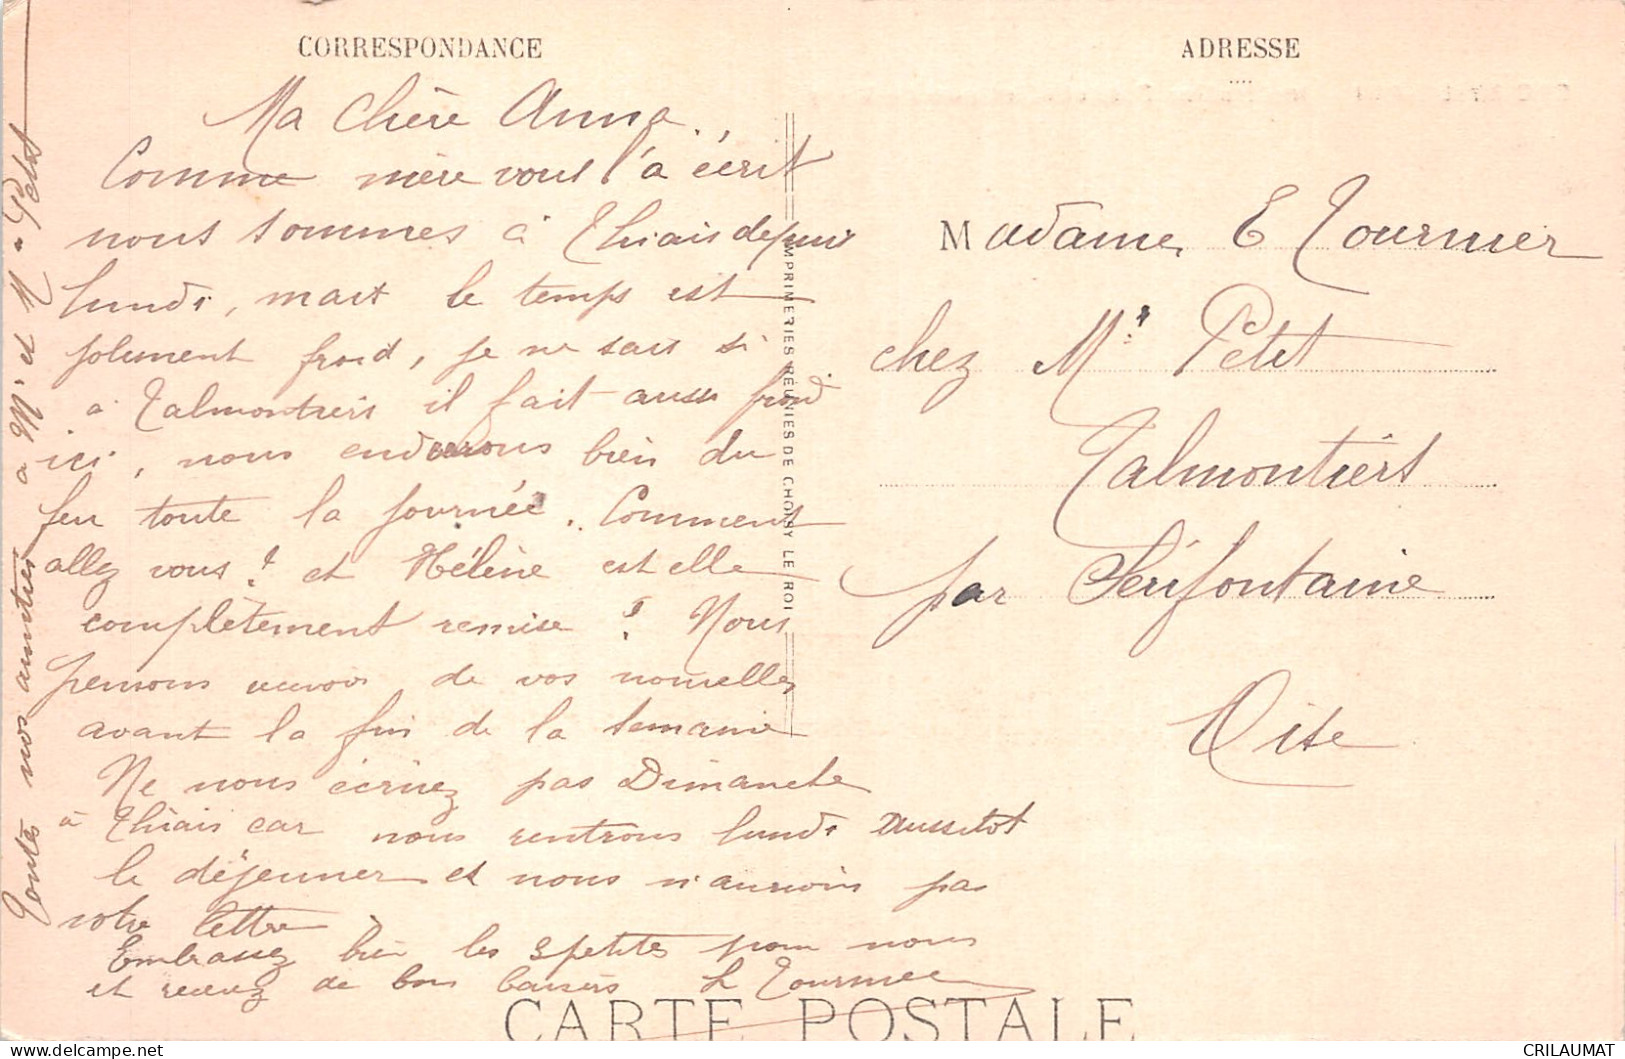 CORRESPONDANCE
Ma chère Anna.,
Comme mère vous l'a écrit
nous sommes à Thiais depuis
lundi, mais le temps est
joliment froid, je ne sais si
à Talmontiers il fait aussi froid
ici, nous endurons bien du
feu toute la journée. Comment
allez vous? et Hélène est elle
complètement remise? Nous
pensons recevoir de vos nouvelles
avant la fin de la semaine
Ne nous écrivez pas Dimanche
à Thiais car nous rentrons lundi aussitot
le déjeuner et nous n'aurions pas
votre lettre
Embrassez bien les 3 petites pour nous
et recevez de bons baisers L Tournier
Toutes nos amitiés à Mr et M. Petit
IMPRIMERIES RÉUNIES DE CHOISY LE ROI
ADRESSE
Madame E Tournier
chez Mr Petit
Talmontiers
par Sérifontaine
Oise
CARTE POSTALE
CRILAUMAT